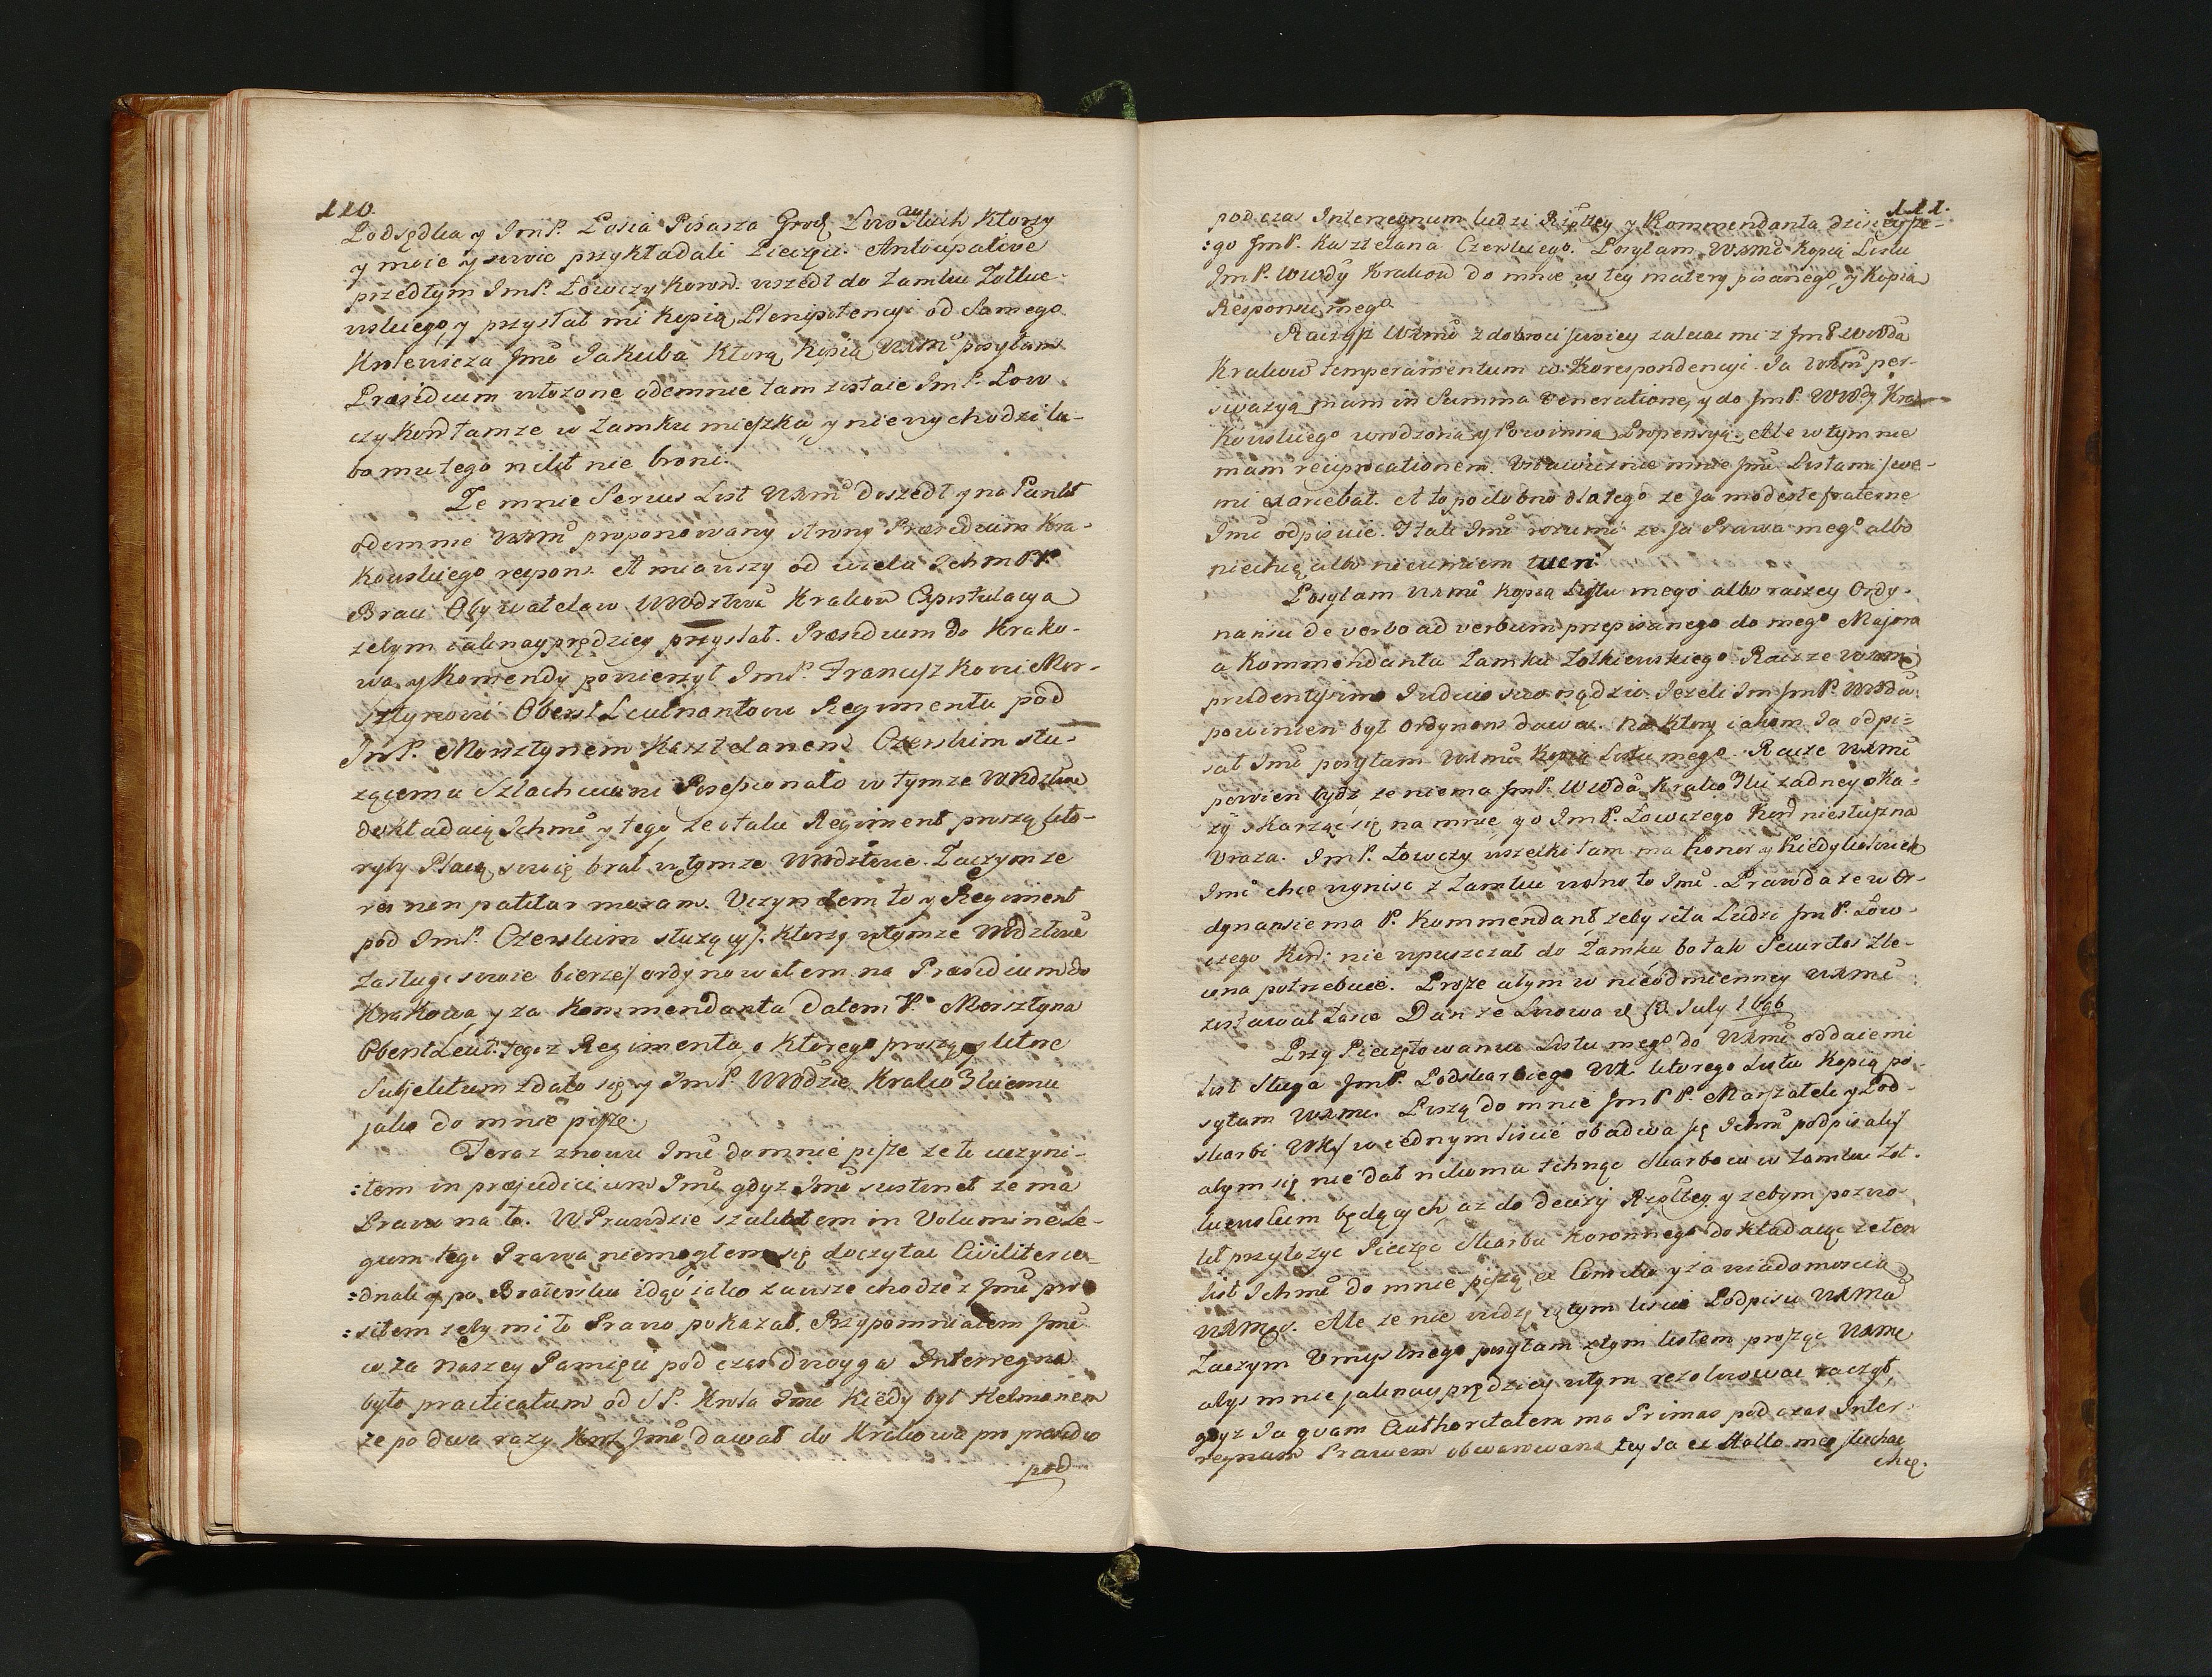 110.
Podsędka y JmP. Łosia Pisarza Grod: Lwowskich, ktorzy
y moie y swoie przykładali Pieczęci. Anticipative
przedtym JmP. Łowczy Koron: wszedł do Zamku Zołkie-
wskiego, y przysłał mi kopią Plenipotencyi od Samego
Krolewicza Jmći Jakuba, ktorą kopią WXMći posyłam
Præsidium włozone odemnie tam zostaie JmP. Łow-
czy Kon tamze w Zamku mięszka, y nie wychodzi la-
bo mu tego nikt nie broni.
Ze mnie Serius List WXMći doszedł y na Punkt
odemnie WXMći proponowany strony Præsidium Kra-
kowskiego respons. A miawszy od wielu Ichm PP.
Braci Obywatelow Wwdztwa Krakow Expostulacya
zebym iak nayprędzey przysłał Præsidium do Krako-
wa, y Komendy powierzył JmP. Franciszkowi Mor-
sztynowi Oberst Leutnantowi Regimentu pod
JmP. Morsztynem Kasztelanem Czerskim słu-
zącemu Szlachcicowi Posessionato w tymze Wwdztwie
dokładaiąc Ichmć y tego, ze o taki Regiment proszą kto-
ryby Płacę swoię brał w tymze Wwdztwie. Zaczym ze
res non patitur moram. Uczyniłem to y Regiment
pod JmP. Czerskim słuzący /: ktory w tymze Wwdztwie
zasługi swoie bierze :/ ordynowałem na Præsidium do
Krakowa, y za Kommendanta dałem P. Morsztyna
Oberst Leut: tegoz Regimentu, o ktorego proszą, y ktore
Subjectum zdało się y JmP. Wwdzie Krakowskiemu
jako do mnie pisze.
Teraz znowu Jmć do mnie pisze ze to uczyni-
:łem in præjudicium Jmći, gdyz Jmć sustinet ze ma
Prawo na to. W Prawdzie szukałem in Volumine Le-
gum tego Prawa niemogłem się doczytać Civiliter ie-
:dnak y po Bratersku idąc iako zawsze chodzę z Jmć pro-
:siłem zeby mi to Prawo pokazał. Przypomniałem Jmći
co za naszey Pamięci pod czas dwoyga Interregna
było practicatum od SP. Krola Jmći kiedy był Hetmanem
ze po dwa razy Krol Jmć dawał do Krakowa pro præsidio
pod
111.
pod czas Interregnum ludzi Rzpltey y Kommendanta dzisieysze-
:go JmP. Kasztelana Czerskiego. Posyłam WXMći Kopią Listu
JmP. Wwdy Krakow do mnie w tey matery pisanego, y Kopią
Responsu mego.
Raczysz WXMć z dobroci swoiey zalecać mi z JmP. Wwdą
Krakow temperamentum w Korespondencyi. Ja WXMći per-
swazyą mam in Summa veneratione, y do JmP. Wwdy Kra-
kowskiego wrodzoną y Powinną Propensyą. Ale w tym nie
mam reciprocationem. Ustawicznie mnie Jmć Listami swe-
mi exacerbat. A to podobno dla tego ze Ja modeste fraterne
Jmći odpisuie. I tak Jmć rozumi ze Ja Prawa mego albo
niechcę albo nieumiem tueri.
Posyłam WXMći kopią Listu mego albo raczey Ordy-
nansu de verbo ad verbum przepisanego do mego Majora
a Kommendanta Zamku Zołkiewskiego. Racz ze WXMć
prudentissimo Judicio swo rządzić. Jezeli Im JmP. Wwda
powinien był Ordynans dawać. Na ktory iakom Ja odpi-
sał Jmći posyłam WXMći kopią Listu mego. Racz ze WXMć
pewien bydz ze niema JmP. Wwda Krakowski zadney oka-
zyi skarząc się na mnie, y o JmP. Łowczego Kon niesłuszna
Uraza. JmP. Łowczy wszelki tam ma honor y kiedykolwiek
Jmć chce wyniść z Zamku wolno to Jmći. Prawda ze w Or-
dynansie ma P. Kommendant zeby siła Ludzi JmP. Łow-
czego Kon: nie wpuszczał do Zamku, bo tak Securitas zle-
cona potrzebuie. Proszę abym w nieodmienney WXMći
zostawał Łasce Dan ze Lwowa d. 13 July 1696
Przy Pieczętowaniu Listu mego do WXMći oddaie mi
List Sługa JmP. Podskarbiego WX. ktorego Listu Kopią po-
syłam WXMći. Piszą do mnie Jm PP. Marszałek y Pod-
skarbi WX/ w iednym liście obadwa się Ichmć podpisali/
abym się nie dał nikomu tchnąć Skarbow w Zamku Zoł-
kiewskim będących az do decizyi Rzpltey, y zebym pozwo-
lił przyłozyć Pieczęć Skarbu Koronnego dokładaiąc ze ten
list Ichmć do mnie piszą ex Consilio y za wiadomoscią
WXMći. Ale ze nie widzę w tym liscie Podpisu WXMći
Zaczym Umyslnego posyłam z tym listem prosząc WXMći
abyś mnie jaknayprędzey w tym rezolwować raczył,
gdyz Ja quam Authoritatem ma Primas pod czas Inter-
regnum Prawem obwarowaną tey Ja ex Stallo meo słuchać
chcę.